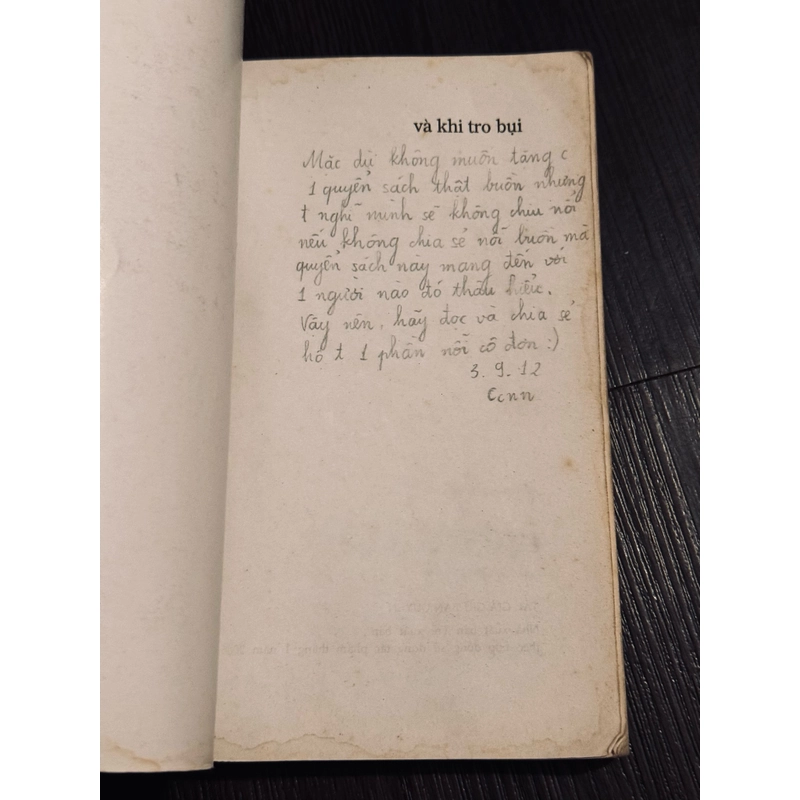 và khi tro bụi
Mặc dù không muốn tặng c
1 quyển sách thật buồn nhưng
t nghĩ mình sẽ không chịu nổi
nếu không chia sẻ nỗi buồn mà
quyển sách này mang đến với
1 người nào đó thấu hiểu.
Vậy nên, hãy đọc và chia sẻ
hộ t 1 phần nỗi cô đơn :)
3. 9. 12
Ccnn